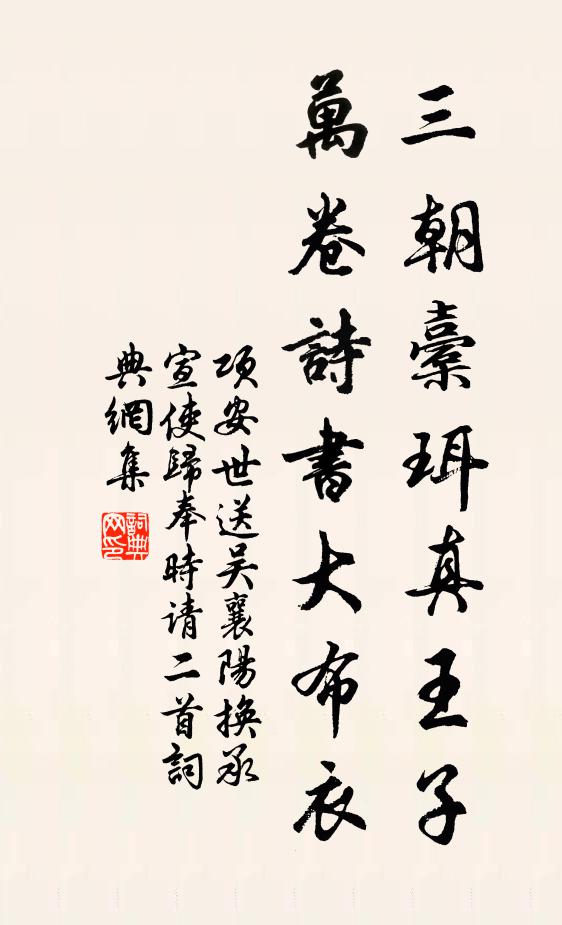 三朝橐珥真王子
萬卷詩書大布衣
項安世送吴襄陽換承
宣使歸奉時请二首詞
典網集
詞典
网印